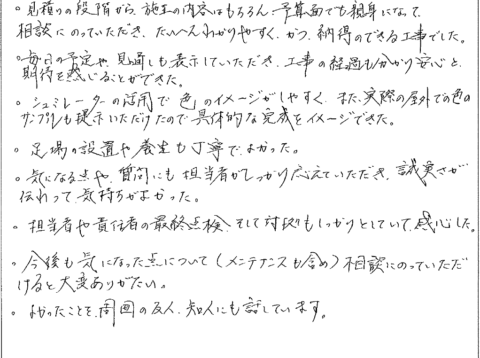 。見積りの段階から、施工の内容はもちろん、予算面でも親身になって
相談にのっていただき、たいへんわかりやすく、かつ、納得のできる工事でした。
。毎日の予定や、見通しも表示していただき、工事の経過もわかり安心と、
期待を感じることができた。
。シュミレーターの活用で色のイメージがしやすく、また、実際の屋外での色の
サンプルも提示いただけたので具体的な完成をイメージできた。
。足場の設置や養生も丁寧で、よかった。
。気になる点や、質問にも担当者がしっかり応えていただき、誠実さが
伝わって気持ちがよかった。
。担当者や責任者の最終点検、そして対処もしっかりとしていて、感心した。
。今後も気になった点について(メンテナンスも含め)相談にのっていただ
けると大変ありがたい。
。よかったことを、周囲の友人、知人にも話しています。